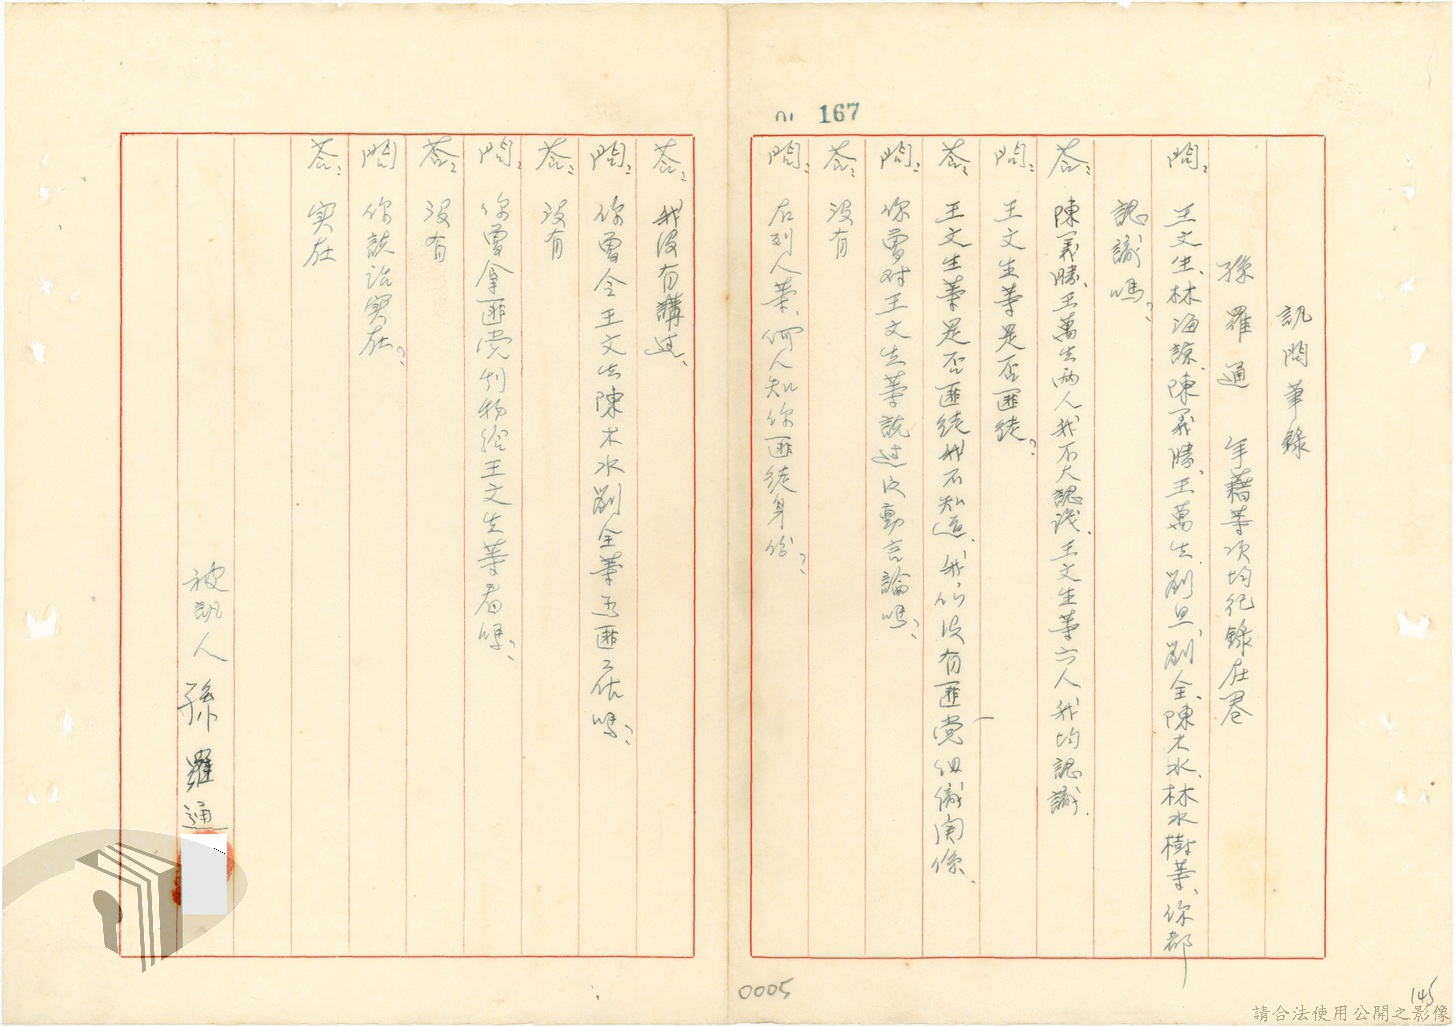 167
訊問筆錄
孫羅通 年藉等項均紀錄在卷
問：王文生、林海諒、陳義勝、王萬生、劉旦、劉全、陳木水、林水樹等、你都
認識嗎？
答：陳義勝、王萬生兩人我不大認識、王文生等六人我均認識.
問：王文生等是否匪徒？
答：王文生等是否匪徒我不知道、我們沒有匪党組織関係.
問：你曾对王文生等說過反動言論嗎？
答：没有
問：右列人等、何人知你匪徒身份？
答：我没有講过、
問：你曾令王文生陳木水劉全等為匪工作嗎？
答：没有
問：你曾拿匪党刊物給王文生等看嗎？
答：没有
問 你說話実在？
答：実在
被訊人 孫羅通
0005
145
請合法使用公開之影像